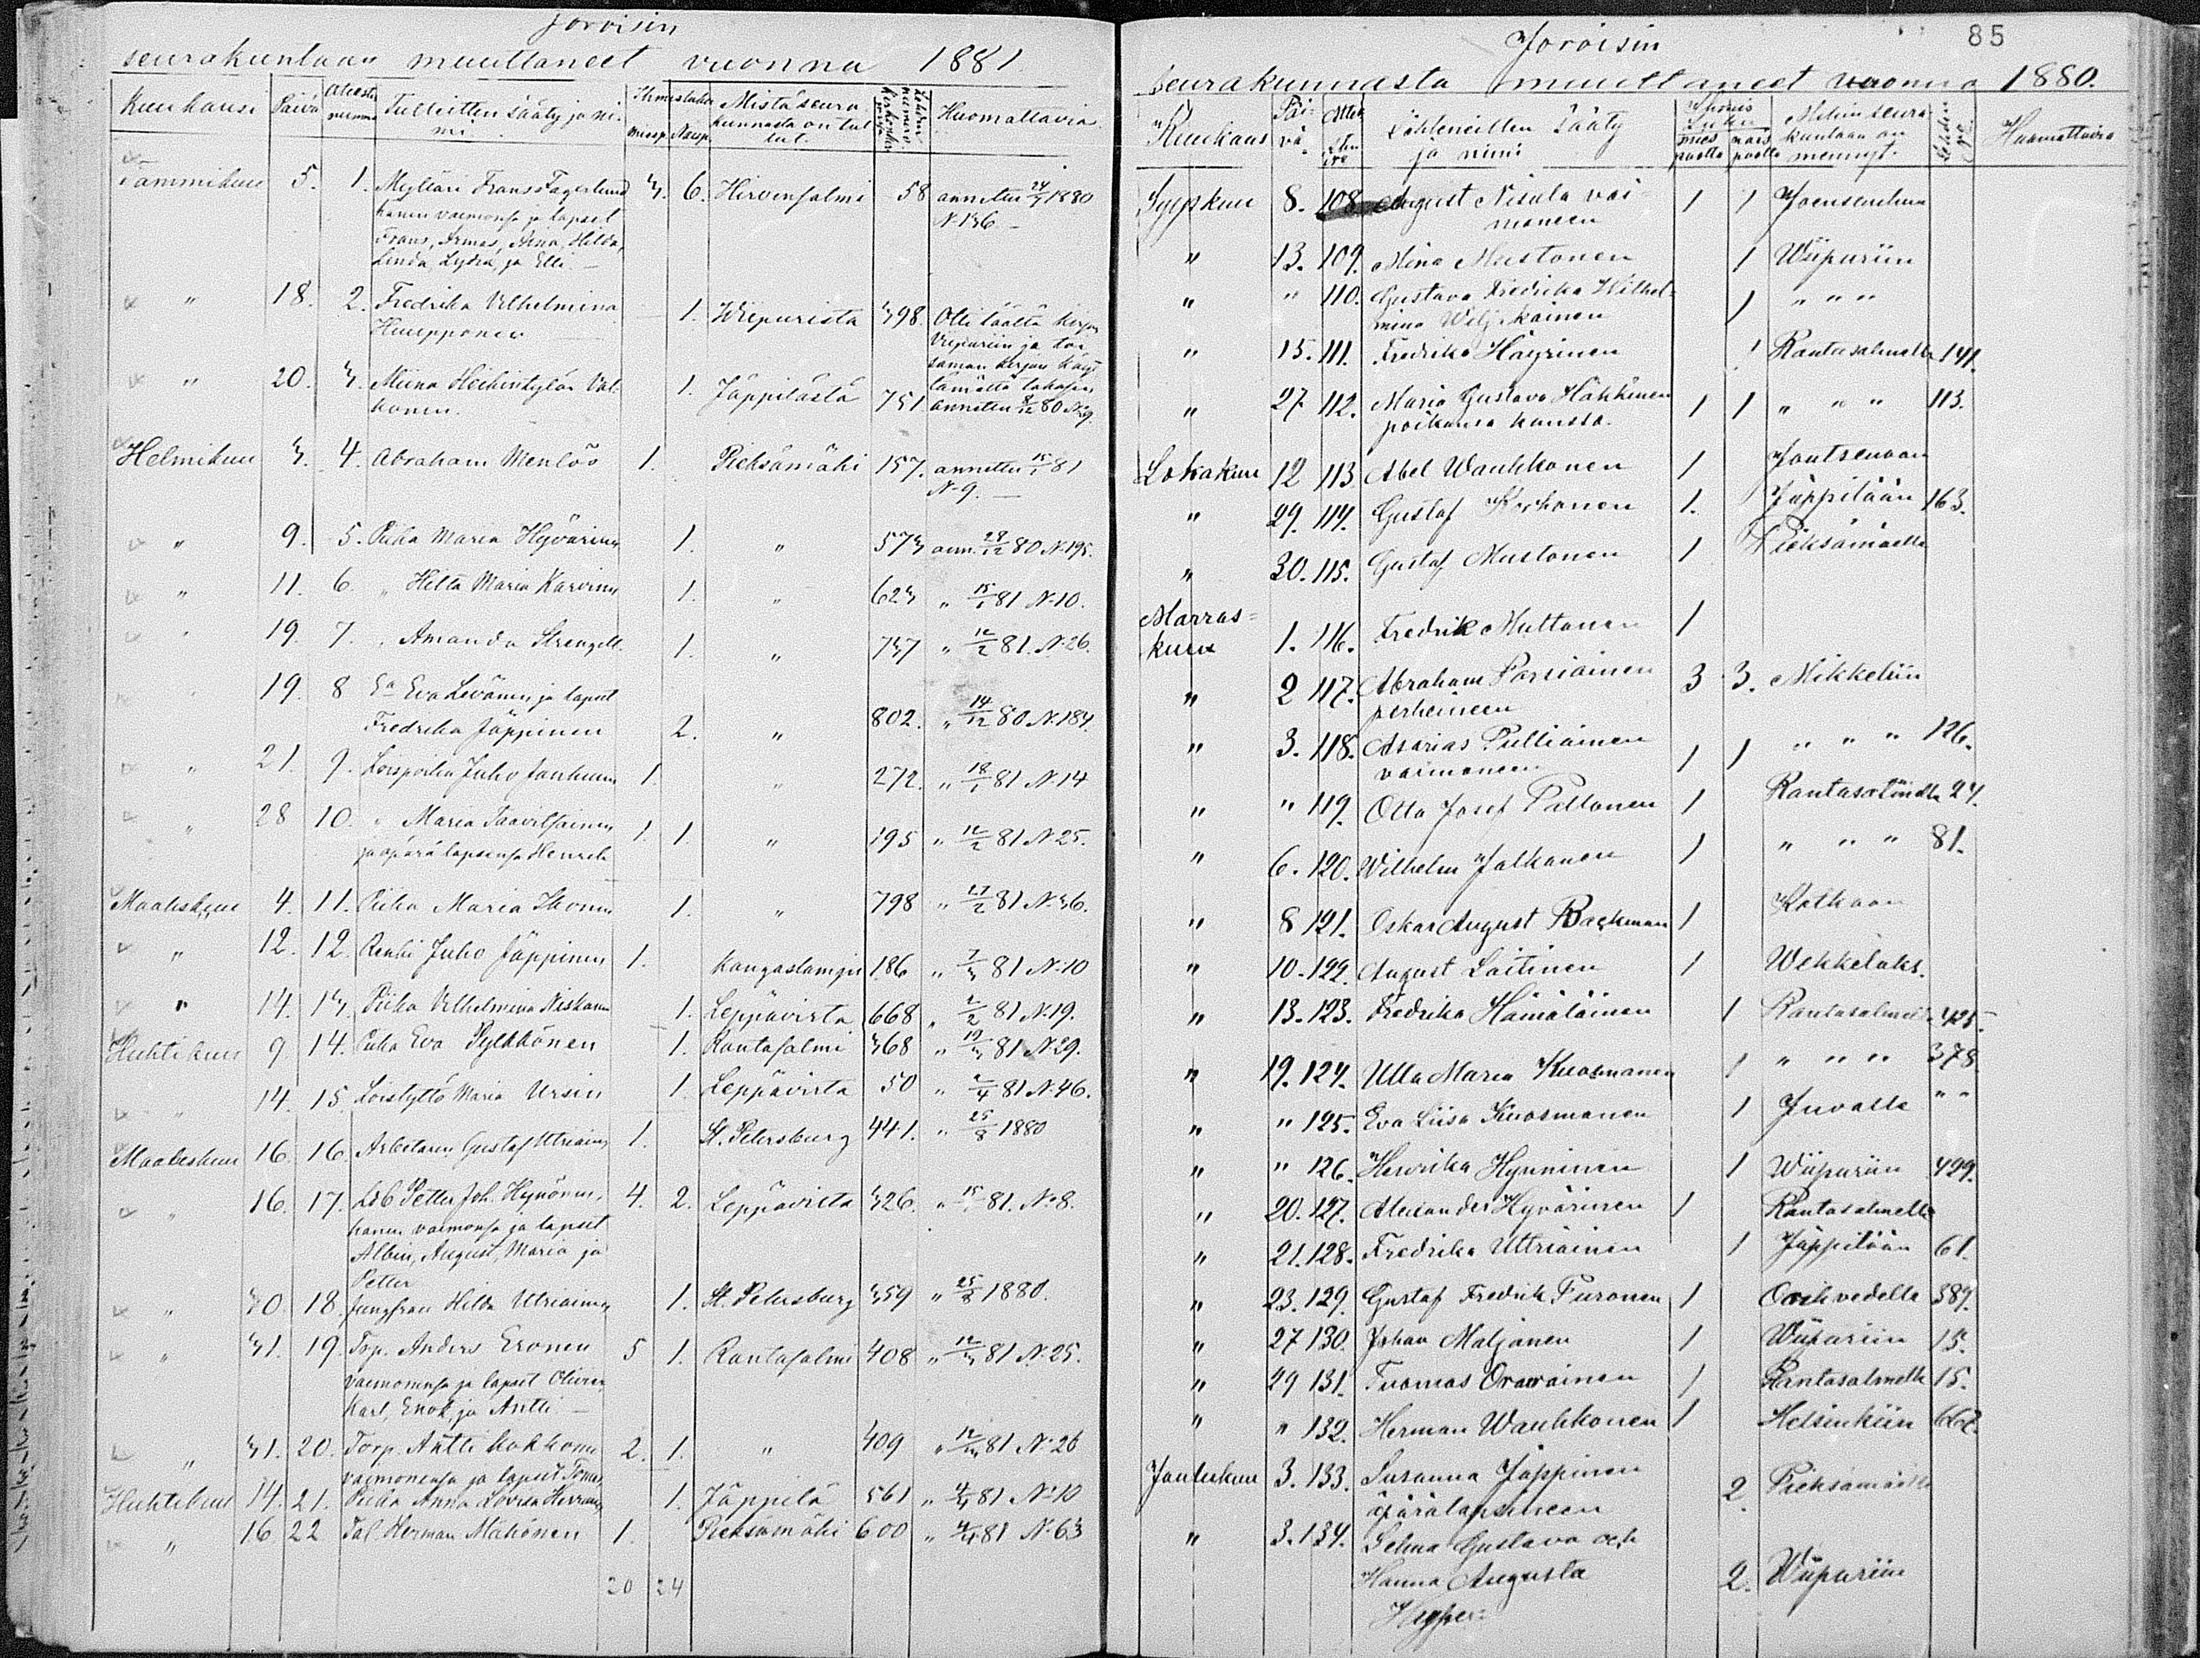 Joroisin
seurakuntaan muuttaneet vuonna 1881.
Kuukausi Päivä Tulleitten sääty ja nimi. Miesp. Naisp. Mistä seurakunnasta on tullut. Huomattavia
Tammikuu 5. 1. Mylläri Frans Fagerlund 3. 6. Hirvensalmi 58 annettu 24/7 1880
hänen vaimonsa ja lapset N. 136.
Frans, Armas, Aina, Hilda,
Linda, Lydia, ja Elli
" 18. 2. Fredrika Vilhelmina 1. Wiipurista 398. Otti täältä kirjan
Huupponen Viipuriin ja toi
saman kirjan käyt-
" 20. 3. Miina 1. Jäppilästä 751 tämättä takasin
konen. annettu 8/12 80 N. 9.
Helmikuu 3. 4. Abraham Menlös 1. Pieksämäki 157. annettu 15/1 81
N. 9.
" 9. 5. Piika Maria Hyvärinen 1. " 573 ann. 28/12 80 N. 195.
" 11. 6. " Helta Maria Karvinen 1. " 623 " 15/1 81 N. 10.
" 19. 7. " Amanda Strengell. 1. " 737 " 12/2 81. N. 26.
19. 8 Eva Levänen ja lapset
Fredrika Jäppinen 2. " 802. " 14/12 80 N. 184.
" 21. 9. Loispoika Juho Janhunen 1. " 272. " 18/1 81 N. 14
" 28 10. " Maria Taavitsainen 1. 1. " 195 " 12/2 81 N. 25.
ja äpärälapsensa Henrik
Maaliskuu 4. 11. Piika Maria Ikonen 1. " 798 " 27/2 81 N. 36.
" 12. 12. Renki Juho Jäppinen 1. Kangaslampi 186 " 7/3 81 N. 10
" 14. 13. Piika Vilhelmina Niskanen 1. Leppävirta 668 " 2/2 81 N. 19.
Huhtikuu 9 14. Piika Eva Pylkkönen 1. Rantasalmi 368 " 19/3 81 N. 29.
" 14. 15. Loistyttö Maria Ursin 1. Leppävirta 50 " 2/4 81 N. 46.
Maaliskuu 16. 16. Arbetaren Gustaf Utriainen 1. St. Petersburg 441. " 25/8 1880
" 16. 17. Petter Joh. Hynönen, 4. 2. Leppävirta 326. " 15/1 81. N. 8.
hänen vaimonsa ja lapset
Albin, August, Maria ja
Petter
" 30 18. Jungfrau Hilda Utriainen 1. St. Petersburg 359 " 25/8 1880.
" 31. 19. Torp. Anders Eronen 5 1. Rantasalmi 408 " 12/3 81 N. 25.
vaimonensa ja lapset Olivia,
Karl, Enok, ja Antti
" 31. 20. Torp. Antti Kokkonen 2. 1. " 409 " 12/3 81 N. 26
vaimonensa ja lapset Tomas
Huhtikuu 14. 21. Piika Anna Lovisa 1. Jäppilä 561 " 4/4 81 N. 10
" 16. 22 Tal. Herman Mähönen 1. Pieksämäki 600 " 4/4 81 N. 63
20 24
85
Joroisin
seurakunnasta muuttaneet vuonna 1880.
Kuukaus Päivä Lähteneitten Sääty ja nimi Ihmis Luku miespuolta naispuolta Mihin seurakuntaan on mennyt. Huomattavia
Syyskuu 8. 108 August Nisula vai- 1 1 Joensuuhun
moneen
" 13. 109. Mina Mustonen 1 Wiipuriin
" " 110. Gustava Fredrika Wilhel- 1 " " "
mina
" 15. 111. Fredrika Häyrinen 1 Rantasalmelle 141.
" 27 112. Maria Gustava Häkkinen 1 1 " " " 113.
poikansa kanssa.
Lokakuu 12 113 Abel Waukkonen 1 Joutsenoon
" 29. 114. Gustaf Korhonen 1. 1 Jäppilään 163.
" 30. 115. Gustaf Mustonen 1 Pieksämäelle
Marras-
kuu 1. 116. Fredrik Muttonen 1
" 2 117. Abraham Parsiainen 3 3. Mikkeliin
perheineen
" 3. 118. Asarias Pulliainen 1 1 " " " 126.
vaimoneen
" " 119. Otto Josef Paltonen 1 Rantasalmelle 24.
" 6. 120. Wilhelm Jalkanen 1 " " " 81.
" 8 121. Oskar August Backman 1 Kotkaan
" 10. 122. August Laitinen 1 Wekkelaks.
" 13. 123. Fredrika Hämäläinen 1 Rantasalmelle 425.
" 19. 124. Ulla Maria Kuosmanen 1 " " " 378
" " 125. Eva Liisa Kuosmanen 1 Juvalle " "
" " 126. Henrika Hynninen 1 Wiipuriin 429.
" 20. 127. Alexander Hyvärinen 1 Rantasalmelle
" 21. 128. Fredrika Uttriainen 1 Jäppilään 61.
" 23. 129. Gustaf Fredrik Puronen 1 Orihvedelle 389.
" 27 130. Johan Maljanen 1 Wiipuriin 15.
" 29 131. Tuomas Oravainen 1 Rantasalmelle 15.
" " 132. Herman Waukkonen 1 Helsinkiin 667.
Joulukuu 3. 133. Susanna Jäppinen 2. Pieksämäelle
äpärälapsineen
" 3. 134. Selma Gustava och
Hanna Augusta 2. Wiipuriin